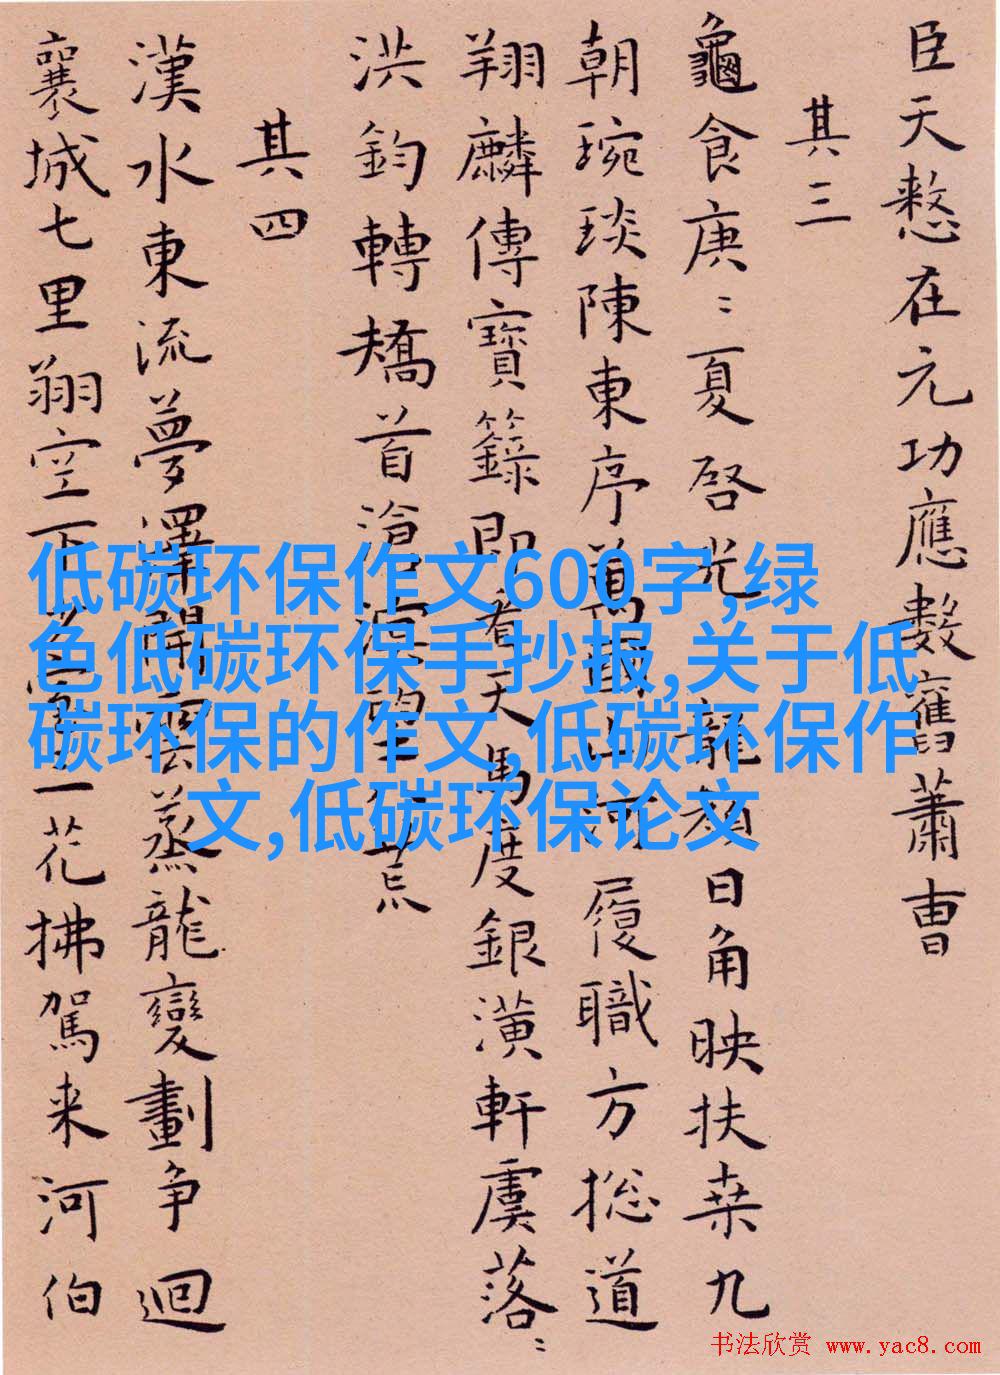 臣天憗在元功應數舊蕭曹
其三
龜食庚〻夏啓光龍顏日角映扶桒九
朝琬琰陳東序萬國山河履職方揔道
翔麟傳寶籙即看天馬度銀潢軒虞落〻
洪鈞轉矯首滄溟望八荒
其四
漢水東流夢澤開雲蒸龍變劃争迴
襄城七里翔空下 一花拂駕来河伯
低碳环保作文600字,绿
色低碳环保手抄报,关于低
碳环保的作文,低碳环保作
文,低碳环保论文
书法欣赏 www.yac8.com